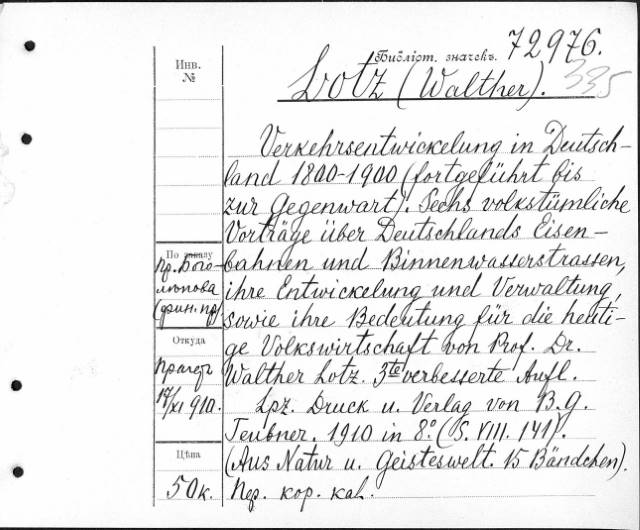 Библіот. значекъ. 72976.
Инв.
№
Lotz (Walther). 335
Verkehrsentwickelung in Deutsch-
land 1800-1900 (fortgeführt bis
zur Gegenwart). Sechs volkstümliche
Vorträge über Deutschlands Eisen-
bahnen und Binnenwasserstrassen,
ihre Entwickelung und Verwaltung,
sowie ihre Bedeutung für die heuti-
ge Volkswirtschaft von Prof. Dr.
Walther Lotz. 3te verbesserte Aufl.
Lpz. Druck u. Verlag von B. G.
Teubner. 1910 in 8º. (S. VIII. 141).
(Aus Natur u. Geisteswelt. 15 Bändchen).
Пер. кор. кал.
По заказу
пр. Бого-
люпова
(фин. пр)
Откуда
Прагеръ
17/XI 910.
Цѣна
50 к.